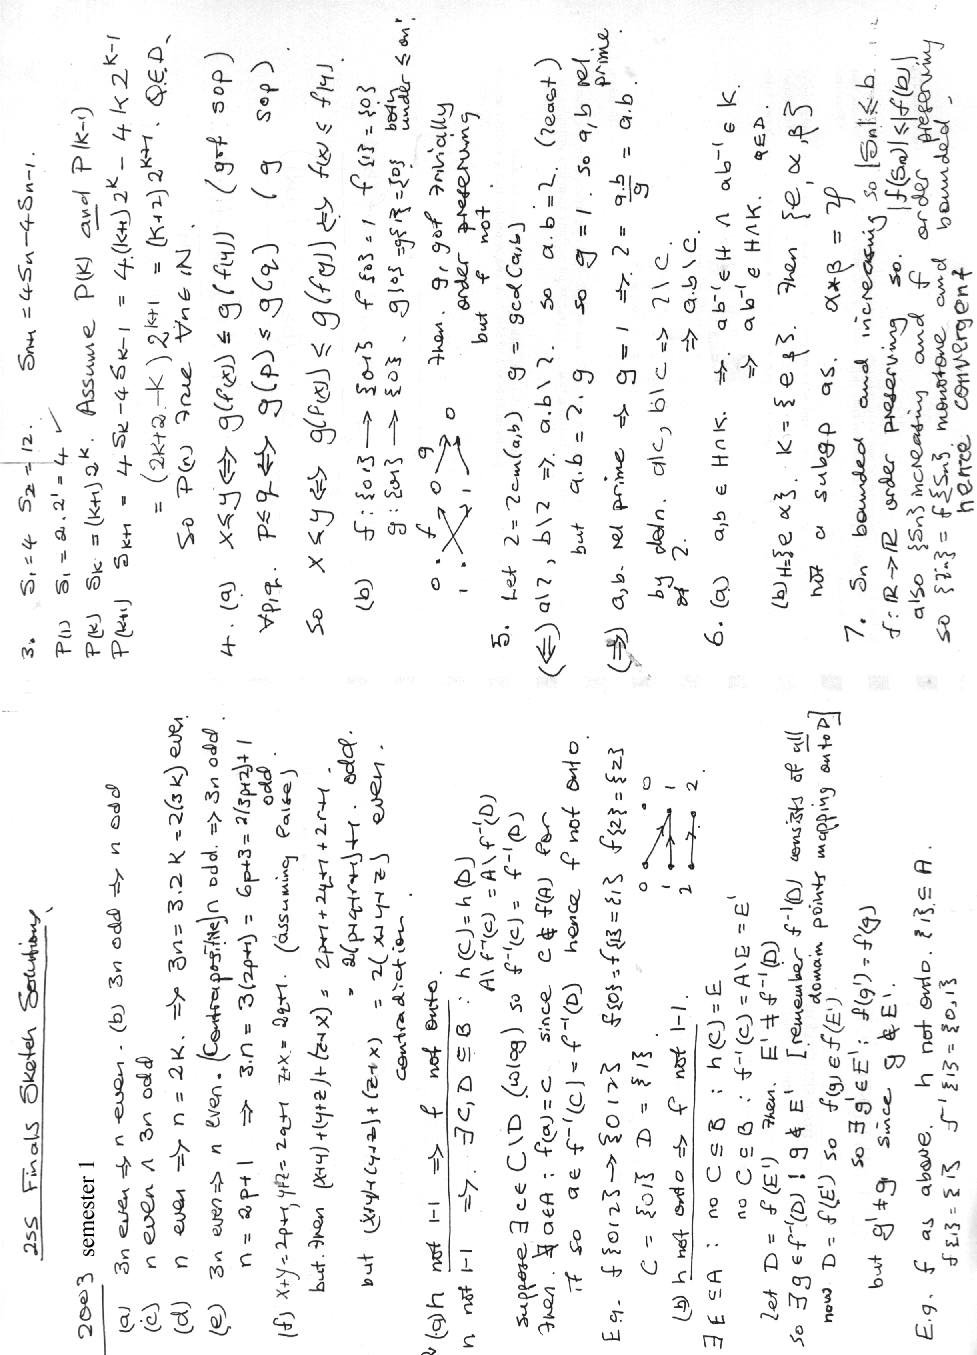 255 Finals Sketch Solutions
2003 semester 1
(a) 3n even ⇒ n even. (b) 3n odd ⇒ n odd
(c) n even ∧ 3n odd
(d) n even ⇒ n = 2K. ⇒ 3n = 3.2K = 2(3K) even
(e) 3n even ⇒ n even. (Contrapositive) n odd. ⇒ 3n odd.
n = 2p+1 ⇒ 3.n = 3(2p+1) = 6p+3 = 2(3p+1)+1 odd
(f) x+y = 2p+1, y+z = 2q+1 z+x = 2r+1. (assuming false)
but then (x+y)+(y+z)+(z+x) = 2p+1+2q+1+2r+1.
= 2(p+q+r+1)+1. odd.
but (x+y)+(y+z)+(z+x) = 2(x+y+z) even.
contradiction
2 (a) h not 1-1 ⇒ f not onto.
h not 1-1 ⇒ ∃ C, D ⊆ B : h(C) = h(D)
A\f⁻¹(C) = A\f⁻¹(D)
suppose ∃ c ∈ C\D (wlog) so f⁻¹(C) = f⁻¹(D)
then ∄ a∈A : f(a) = c since c ∉ f(A) for
if so a ∈ f⁻¹(C) = f⁻¹(D) hence f not onto.
E.g. f {0 1 2} → {0 1 2} f{0} = f{1} = {1} f{2} = {2}
C = {0 1} D = {1}
0 0
1 1
2 2
(b) h not onto ⇒ f not 1-1.
∃ E ⊆ A : no C ⊆ B : h(C) = E
no C ⊆ B : f⁻¹(C) = A\E = E'
let D = f(E') then. E' ≠ f⁻¹(D)
so ∃ g ∈ f⁻¹(D) ! g ∉ E' [remember f⁻¹(D) consists of all
domain points mapping onto D]
now D = f(E') so f(g) ∈ f(E')
so ∃ g' ∈ E' : f(g') = f(g)
but g' ≠ g since g ∉ E'.
E.g. f as above. h not onto. {1} ⊆ A.
f{1} = {1} f⁻¹{1} = {0,1}
3. S₁ = 4 S₂ = 12. Sn+1 = 4Sn - 4Sn-1.
P(1) S₁ = 2.2¹ = 4 ✓
P(K) SK = (K+1)2ᴷ. Assume P(K) and P(K-1)
P(K+1) SK+1 = 4SK - 4SK-1 = 4.(K+1)2ᴷ - 4K2ᴷ⁻¹
= (2K+2-K)2ᴷ⁺¹ = (K+2)2ᴷ⁺¹. Q.E.D.
So P(n) true ∀n∈ℕ.
4. (a) x≤y ⇔ g(f(x)) ≤ g(f(y)) (gof sop)
∀p,q. p≤q ⇔ g(p) ≤ g(q) (g sop)
so x≤y ⇔ g(f(x)) ≤ g(f(y)) ⇔ f(x) ≤ f(y).
(b) f: {0 1} → {0 1} f{0} = 1 f{1} = {0}
g: {0 1} → {0}. g{0} = g{1} = {0} both under ≤ on
0 . f 0 g
1 . 1 0
then. g, gof trivially
order preserving
but f not
5. Let l = lcm(a,b) g = gcd(a,b)
(⇐) a\l, b\l ⇒ a.b\l. so a.b = l. (least)
but a.b = l.g so g = 1. so a,b rel prime.
(⇒) a,b. rel prime ⇒ g = 1 ⇒ l = a.b/g = a.b.
by defn. a\c, b\c ⇒ l\c
of l. ⇒ a.b\c.
6. (a) a,b ∈ H∩K. ⇒ ab⁻¹ ∈ H ∧ ab⁻¹ ∈ K
⇒ ab⁻¹ ∈ H∩K. QED.
(b) H={e α}. K={e β}. Then {e, α, β}
not a subgp as. α*β = γ
7. Sn bounded and increasing so |Sn| ≤ b.
f: ℝ→ℝ order preserving so. |f(Sn)| ≤ |f(b)|
also {Sn} increasing and f order preserving
so {tn} = f{Sn} monotone and bounded.
hence convergent